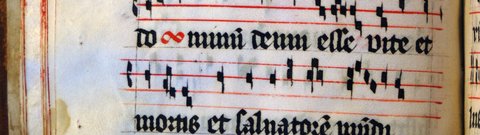 do ꝏ minū deum esse vite et
mortis et saluatorē mūdi